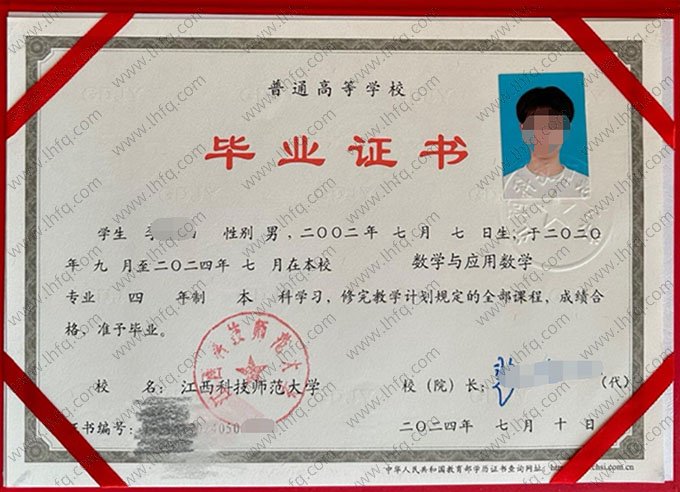 普通高等学校
毕业证书
学生 李 性别 男，二〇〇二年 七月 七日生，于二〇二〇
年 九 月至二〇二四年 七 月在本校 数学与应用数学
专业 四 年制 本 科学习，修完教学计划规定的全部课程，成绩合
格，准予毕业。
江西科技师范大学
校 名： 江西科技师范大学 校（院）长： （代）
证书编号： 4050 二〇二四年 七月 十日
中华人民共和国教育部学历证书查询网址： chsi.com.cn
www.lhfq.com